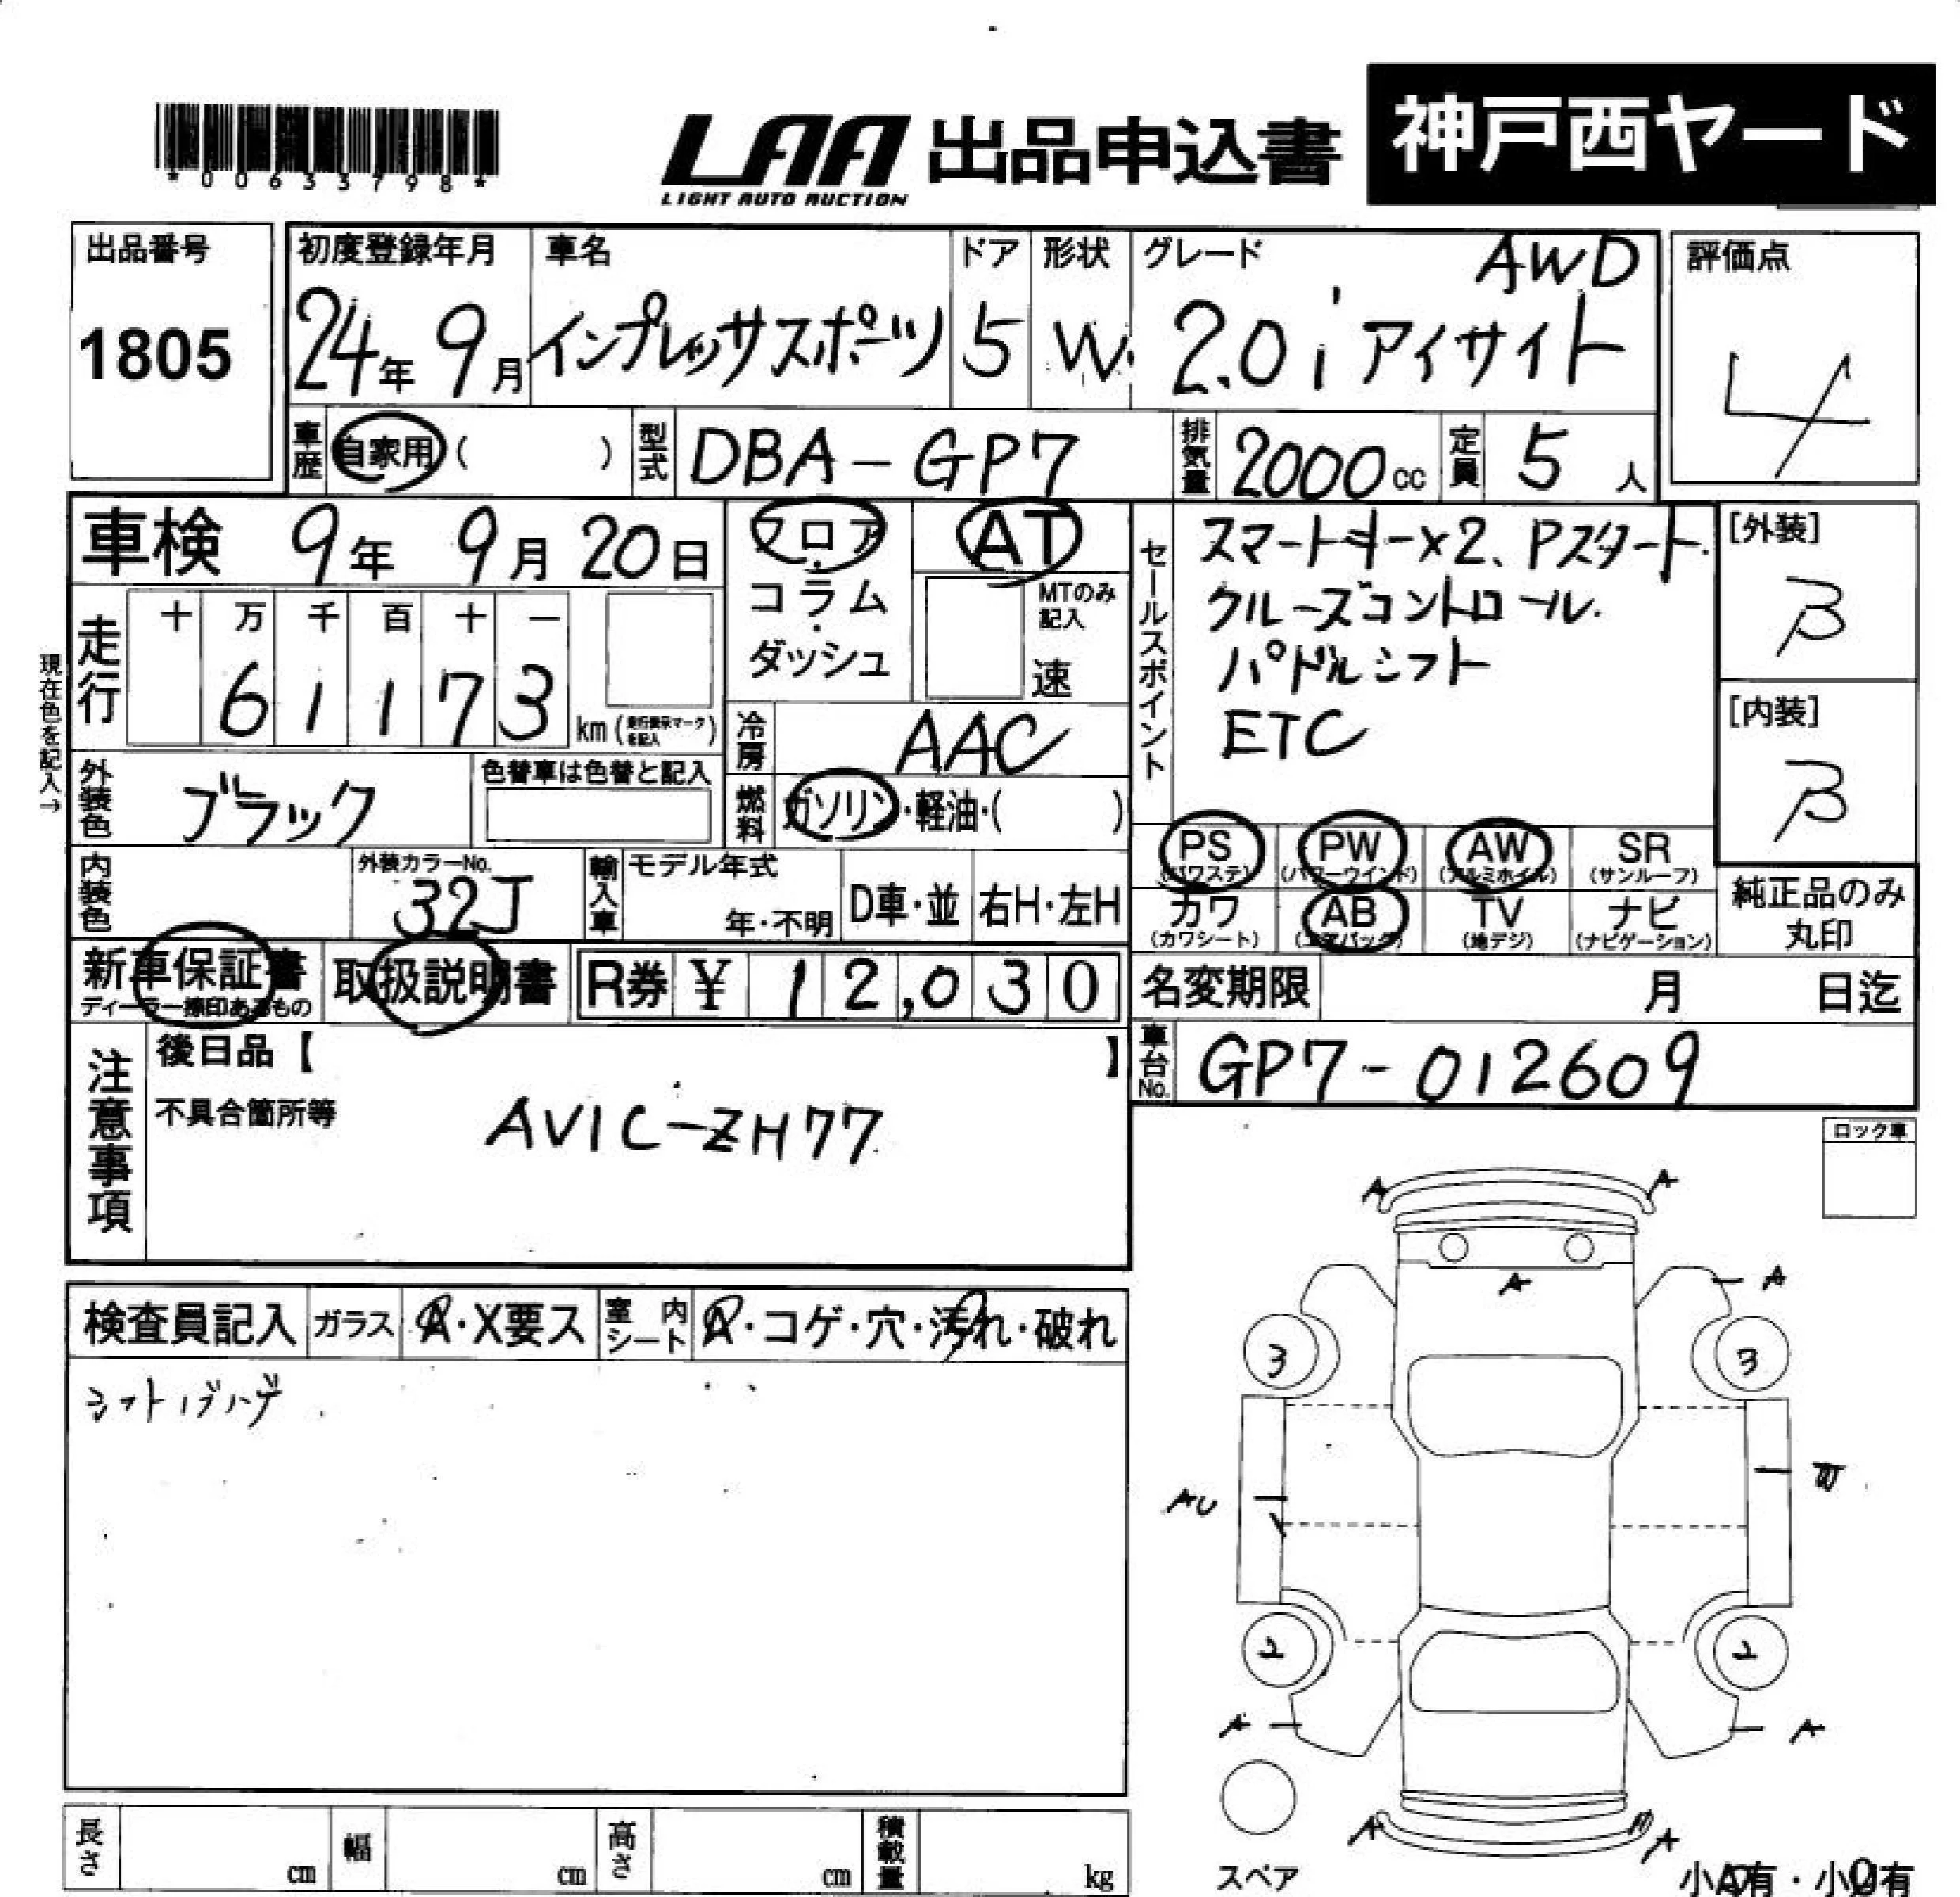 *00633798*
LAA 出品申込書 神戸西ヤード
LIGHT AUTO AUCTION
出品番号 初度登録年月 車名 ドア 形状 グレード AWD 評価点
1805 24年 9月 インプレッサスポーツ 5 W 2.0i アイサイト 4
車歴 自家用 ( ) 型式 DBA-GP7 排気量 2000cc 定員 5人
車検 9年 9月 20日 フロア・コラム・ダッシュ AT
MTのみ記入 速
セールスポイント
スマートキー×2、Pスタート.
クルーズコントロール.
パドルシフト
ETC
[外装]
B
[内装]
B
現在色を記入→
走行 十 万 千 百 十 一
6 1 1 7 3 km (走行表示マークを記入)
冷房 AAC
外装色 ブラック 色替車は色替と記入
燃料 ガソリン・軽油・( )
内装色 外装カラーNo. 32J 輸入車 モデル年式 年・不明 D車・並 右H・左H
PS (パワステ) PW (パワーウインド) AW (アルミホイル) SR (サンルーフ)
カワ (カワシート) AB (エアバッグ) TV (地デジ) ナビ (ナビゲーション)
純正品のみ
丸印
新車保証書 取扱説明書 R券 ¥ 12,030
ディーラー捺印あるもの
名変期限 月 日迄
車台No. GP7-012609
注意事項 後日品【 】
不具合箇所等 AVIC-ZH77
ロック車
検査員記入 ガラス A・X要ス 室内シート A・コゲ・穴・汚れ・破れ
シフトノブハゲ
A A
A A
3 3
AU W
2 2
A A
A A
スペア
小A有・小U有
長さ cm 幅 cm 高さ cm 積載量 kg